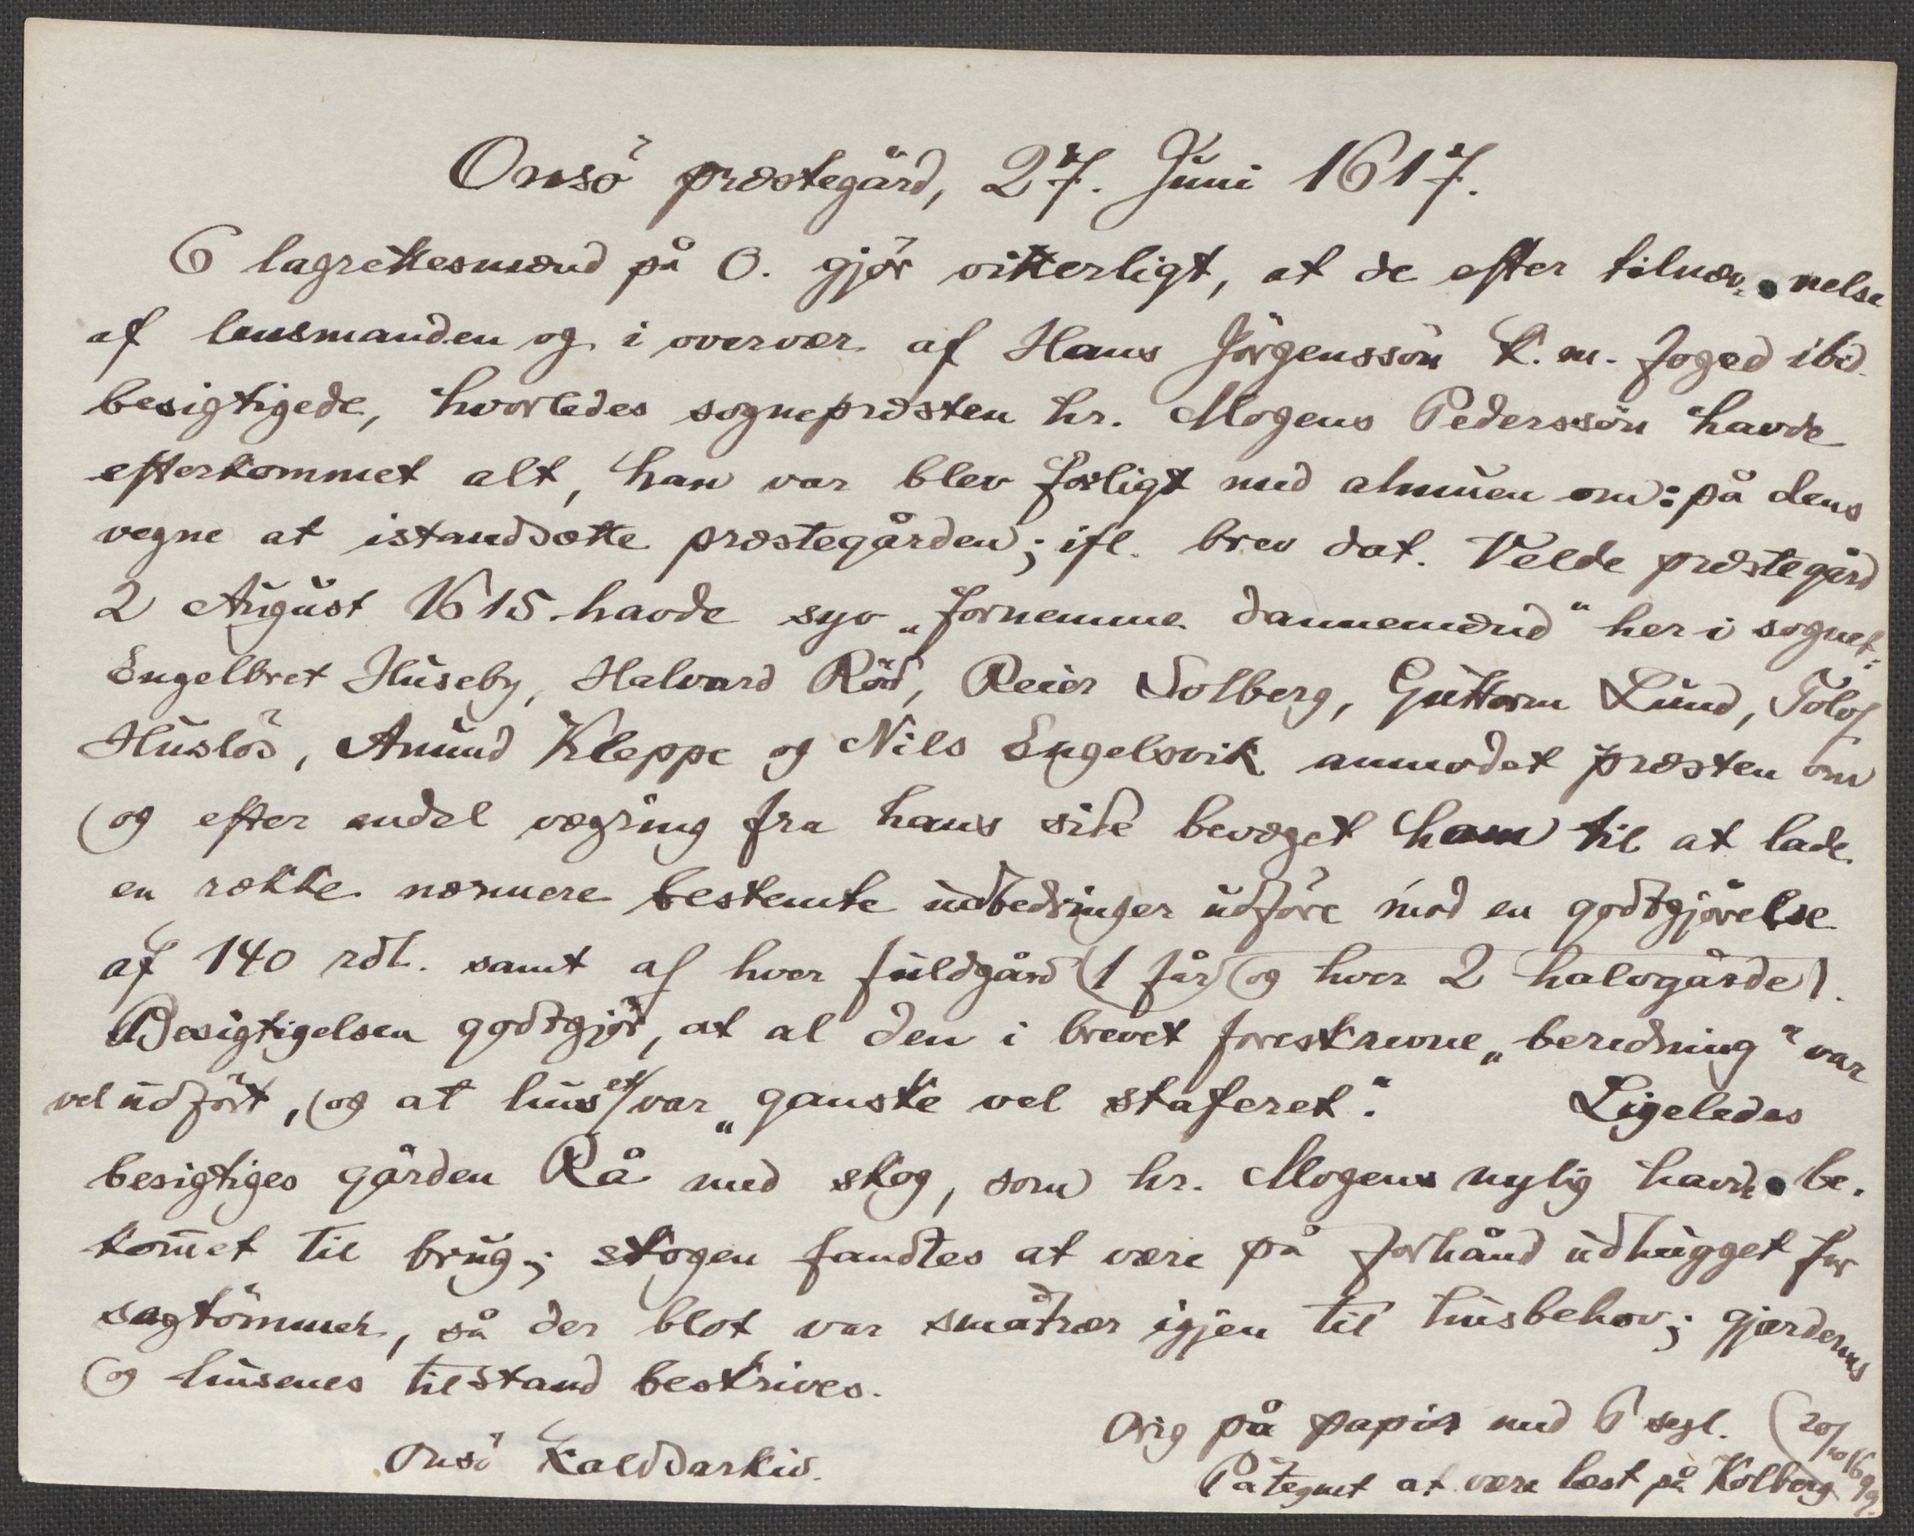 Onsö præstegård, 27. Juni 1617.
6 lagrettesmænd på O. gjör vitterligt, at de efter tilnæv- nelse
af lensmanden og i overvær af Hans Jörgenssön k. m. foged ibd.
besigtigede, hvorledes sognepræsten hr. Mogens Pederssön havde
efterkommet alt, han var blev forligt med almuen om: på dens
vegne at istandsætte præstegården; ifl. brev dat. Velde præstegård
2 August 1615 havde syv „fornemme dannemænd“ her i sognet:
Engelbret Huseby, Halvard Röd, Reier Solberg, Guttorm Lund, Tolof
Huslös, Amund Kleppe og Nils Engelsvik anmodet præsten om
(og efter endel vægring fra hans side bevæget ham til at lade
en række nærmere bestemte udbedringer udföre mod en godtgjörelse
af 140 rdl. samt af hver fuldgård (1 får) (og hver 2 halvgårde).
Besigtigelsen godtgjör, at al den i brevet foreskrevne „beredning“ var
vel udfört, og at huset var „ganske vel staferet“. Ligeledes
besigtiges gården Rå med skog, som hr. Mogens nylig havde be-
kommet til brug; skogen fandtes at være på forhånd udhugget for
sagtömmer, så der blot var småtrær igjen til husbehov; gjærdernes
og husenes tilstand beskrives.
Orig på papir med 6 segl. (20/10 1699.
Onsö Kaldsarkiv.
Påtegnet at være læst på Kolberg